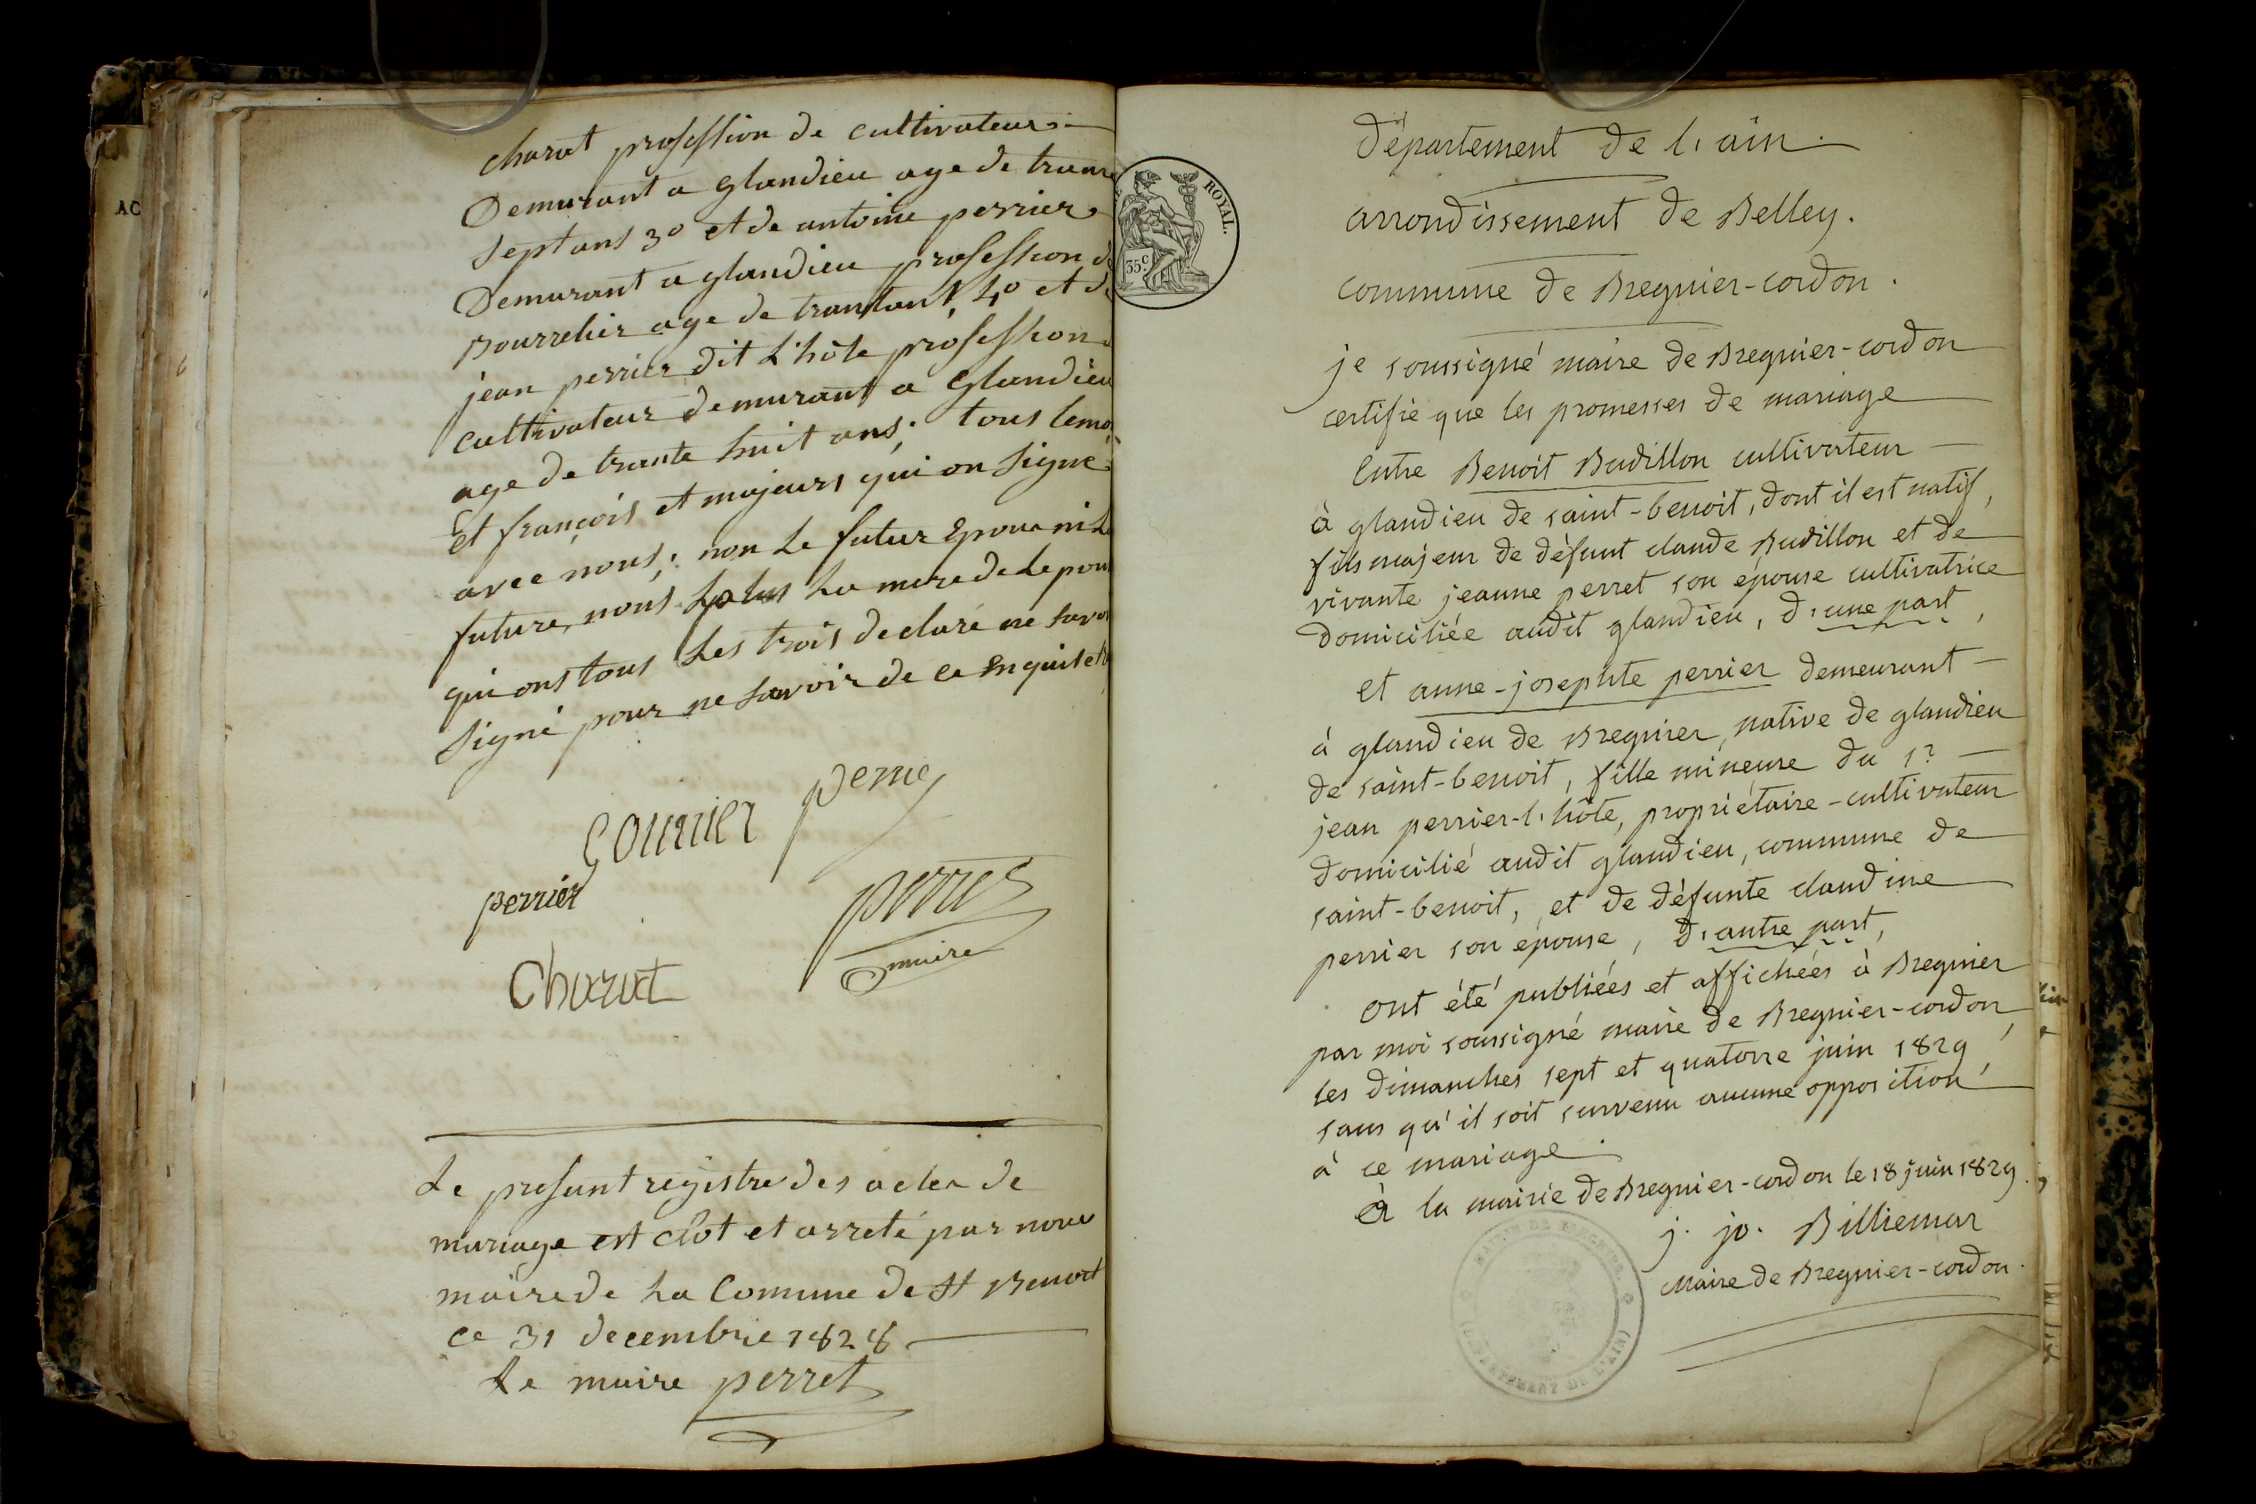 charat profession de cultivateur
Demurant a glandieu age de trante
sept ans 3º et de antoine perrier
Demurant a glandieu profession de
Bourrelier age de trantans, 4º et de
jean perrier dit L'hôte profession
cultivateur demurant a Glandieu
age de trante huit ans; tous temo
et françois et majeurs qui on signe
avec nous; non le futur Epoux ni La
future, nous plus La mere de Lepou
qui ons tous Les trois declaré ne savo
signé pour ne savoir de ce enquis et
gounier perrie
perrier
perret
maire
Charat
Le present registre des actes de
mariage est clot et arreté par nous
maire de La Comune de St Benoit
ce 31 decembre 1828
Le maire perret
AC
ROYAL.
35 c
Département de l'ain.
arrondissement de Belley.
commune de Bregnier-cordon.
je soussigné maire de Bregnier-cordon
certifie que les promesses de mariage
Entre Benoit Budillon cultivateur
à glandieu de saint-benoit, dont il est natif,
fils majeur de défunt claude Budillon et de
vivante jeanne perret son épouse cultivatrice
domiciliée audit glandieu, d'une part,
et anne-josephte perrier demeurant
à glandieu de Bregnier, native de glandieu
de saint-benoit, fille mineure du sr
jean perrier-l'hôte, propriétaire-cultivateur
domicilié audit glandieu, commune de
saint-benoit, et de défunte claudine
perrier son épouse, d'autre part,
ont été publiées et affichées à Bregnier
par moi soussigné maire de Bregnier-cordon,
les dimanches sept et quatorze juin 1829,
sans qu'il soit survenu aucune opposition
à ce mariage.
à la mairie de Bregnier-cordon le 18 juin 1829.
j. jo. Billiemar
Maire de Bregnier-cordon.
DEPARTEMENT DE L'AIN